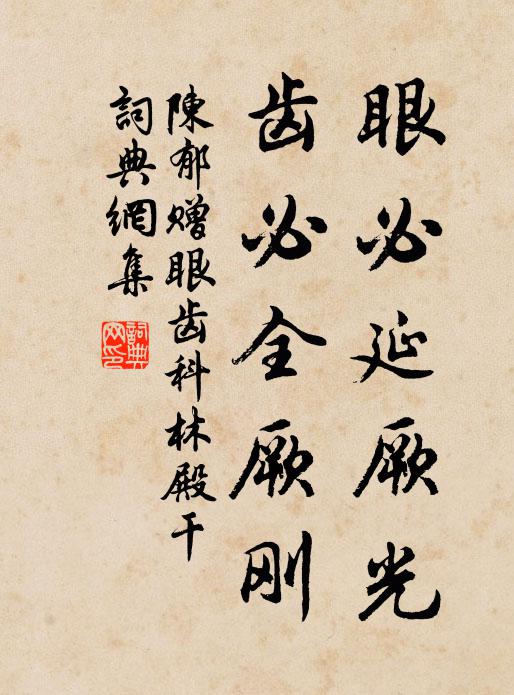 眼必延厥光
齿必全厥刚
陳郁赠眼齿科林殿干
詞典網集
詞典网印